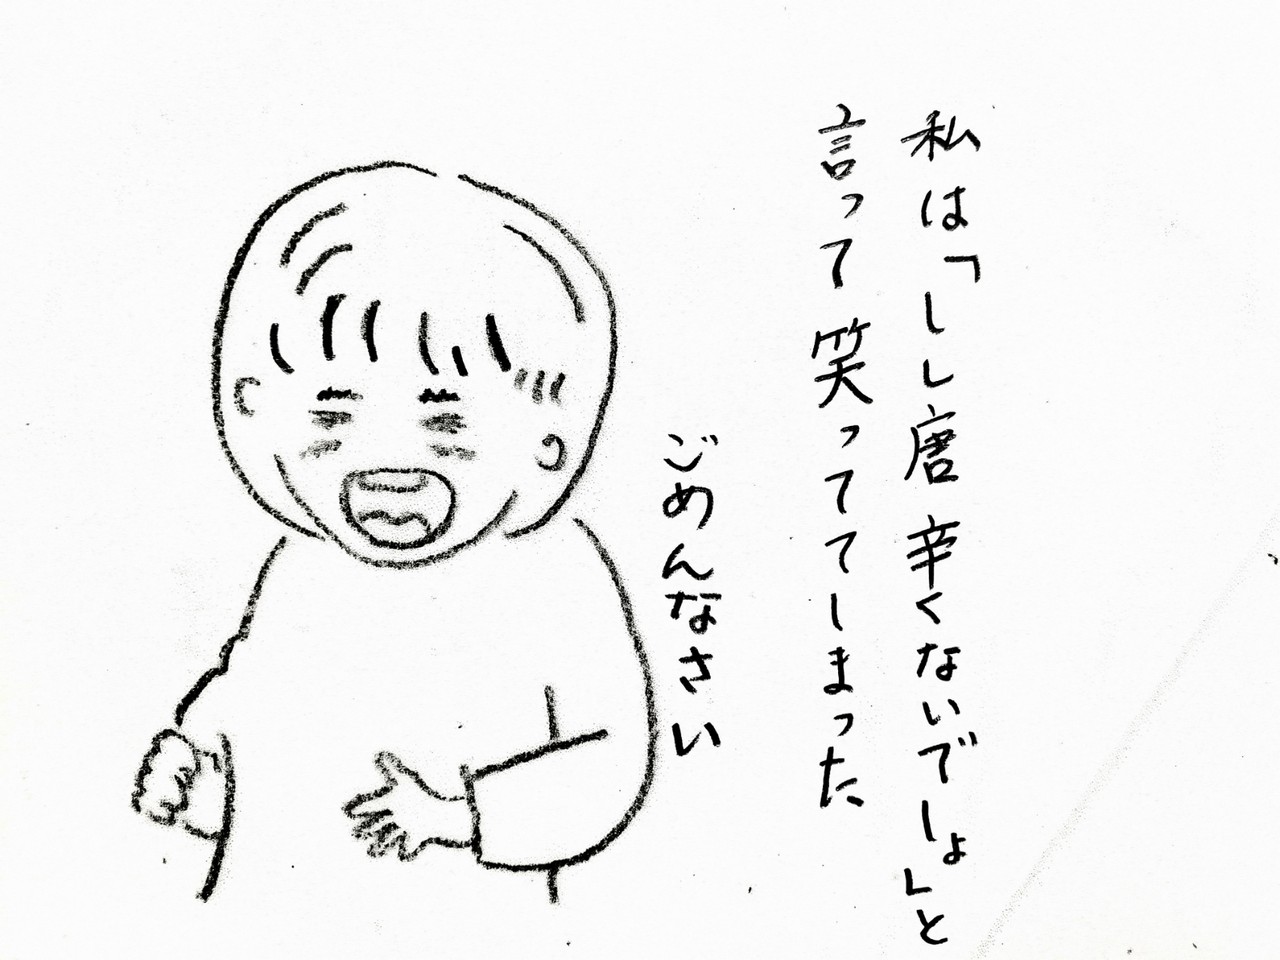 私は「しし唐辛くないでしょ」と
言って笑っててしまった
ごめんなさい